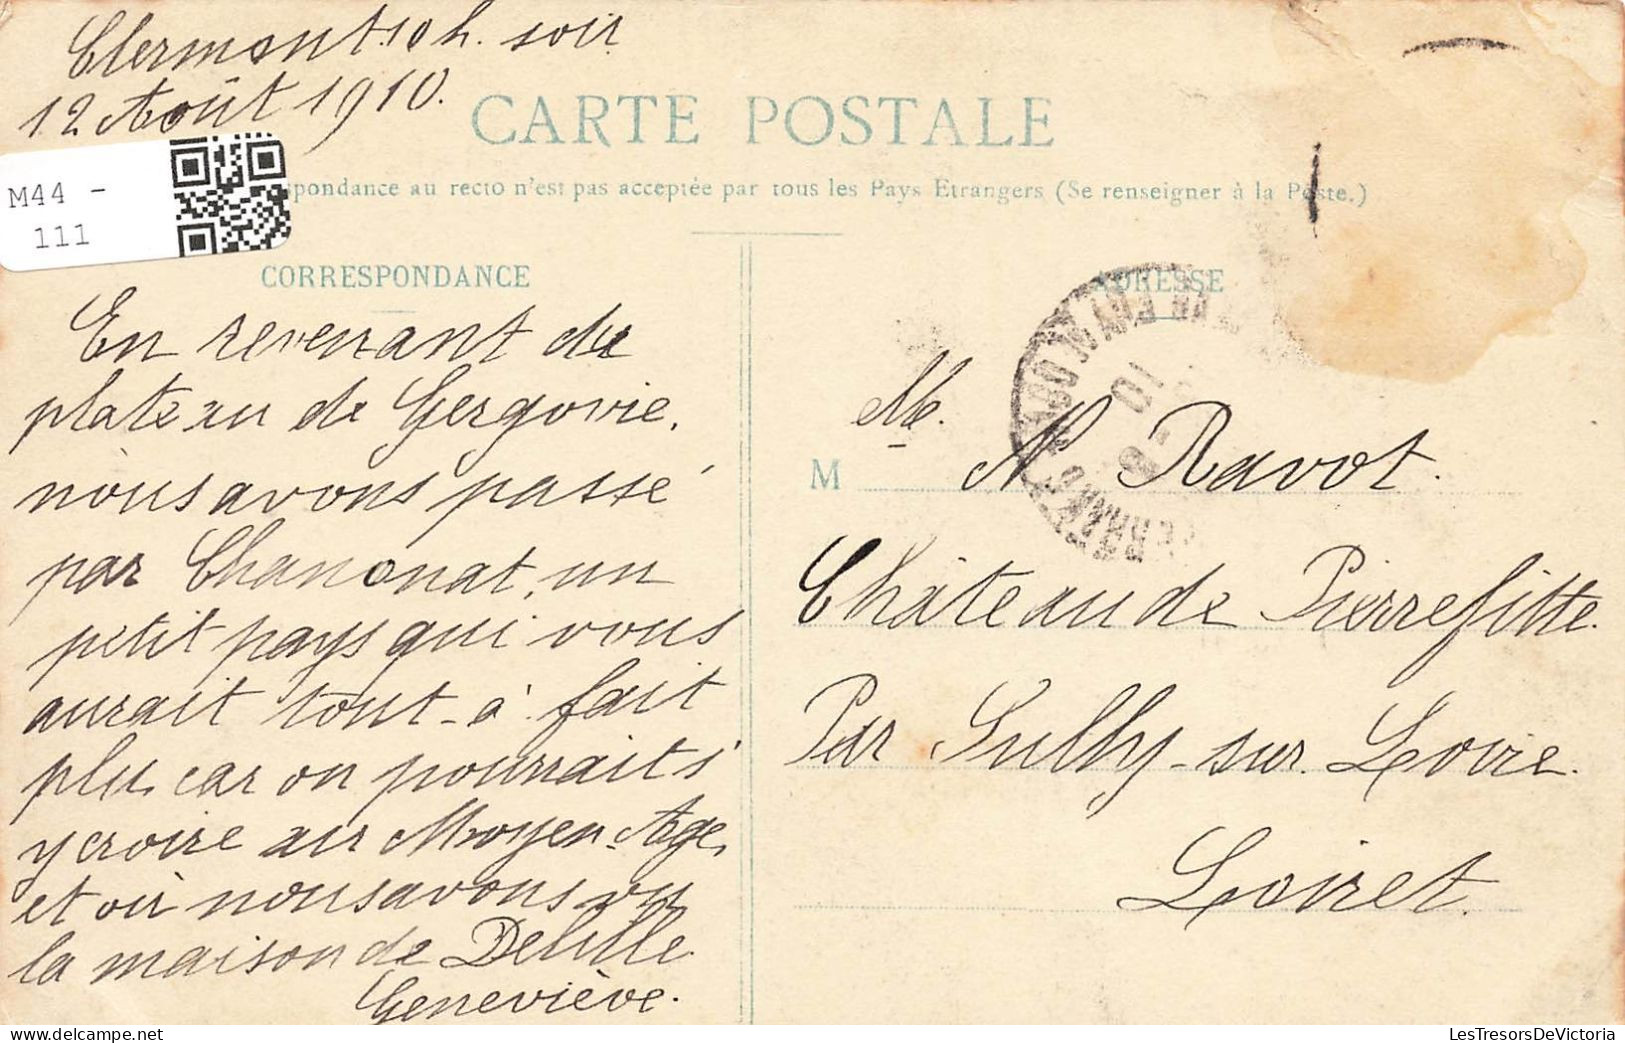 Clermont 10 h. soir
12 Août 1910.
CARTE POSTALE
M44 -
111
spondance au recto n'est pas acceptée par tous les Pays Etrangers (Se renseigner à la Poste.)
CORRESPONDANCE
ADRESSE
En revenant du
plateau de Gergovie,
nous avons passé
par Chanonat, un
petit pays qui vous
aurait tout-à-fait
plu, car on pourrait s'
y croire au Moyen-Age,
et où nous avons vu
la maison de Delille
Geneviève.
Mlle.
M N. Ravot.
Château de Pierrefitte.
Par Sully-sur-Loire.
Loiret.
10
LesTresorsDeVictoria.com